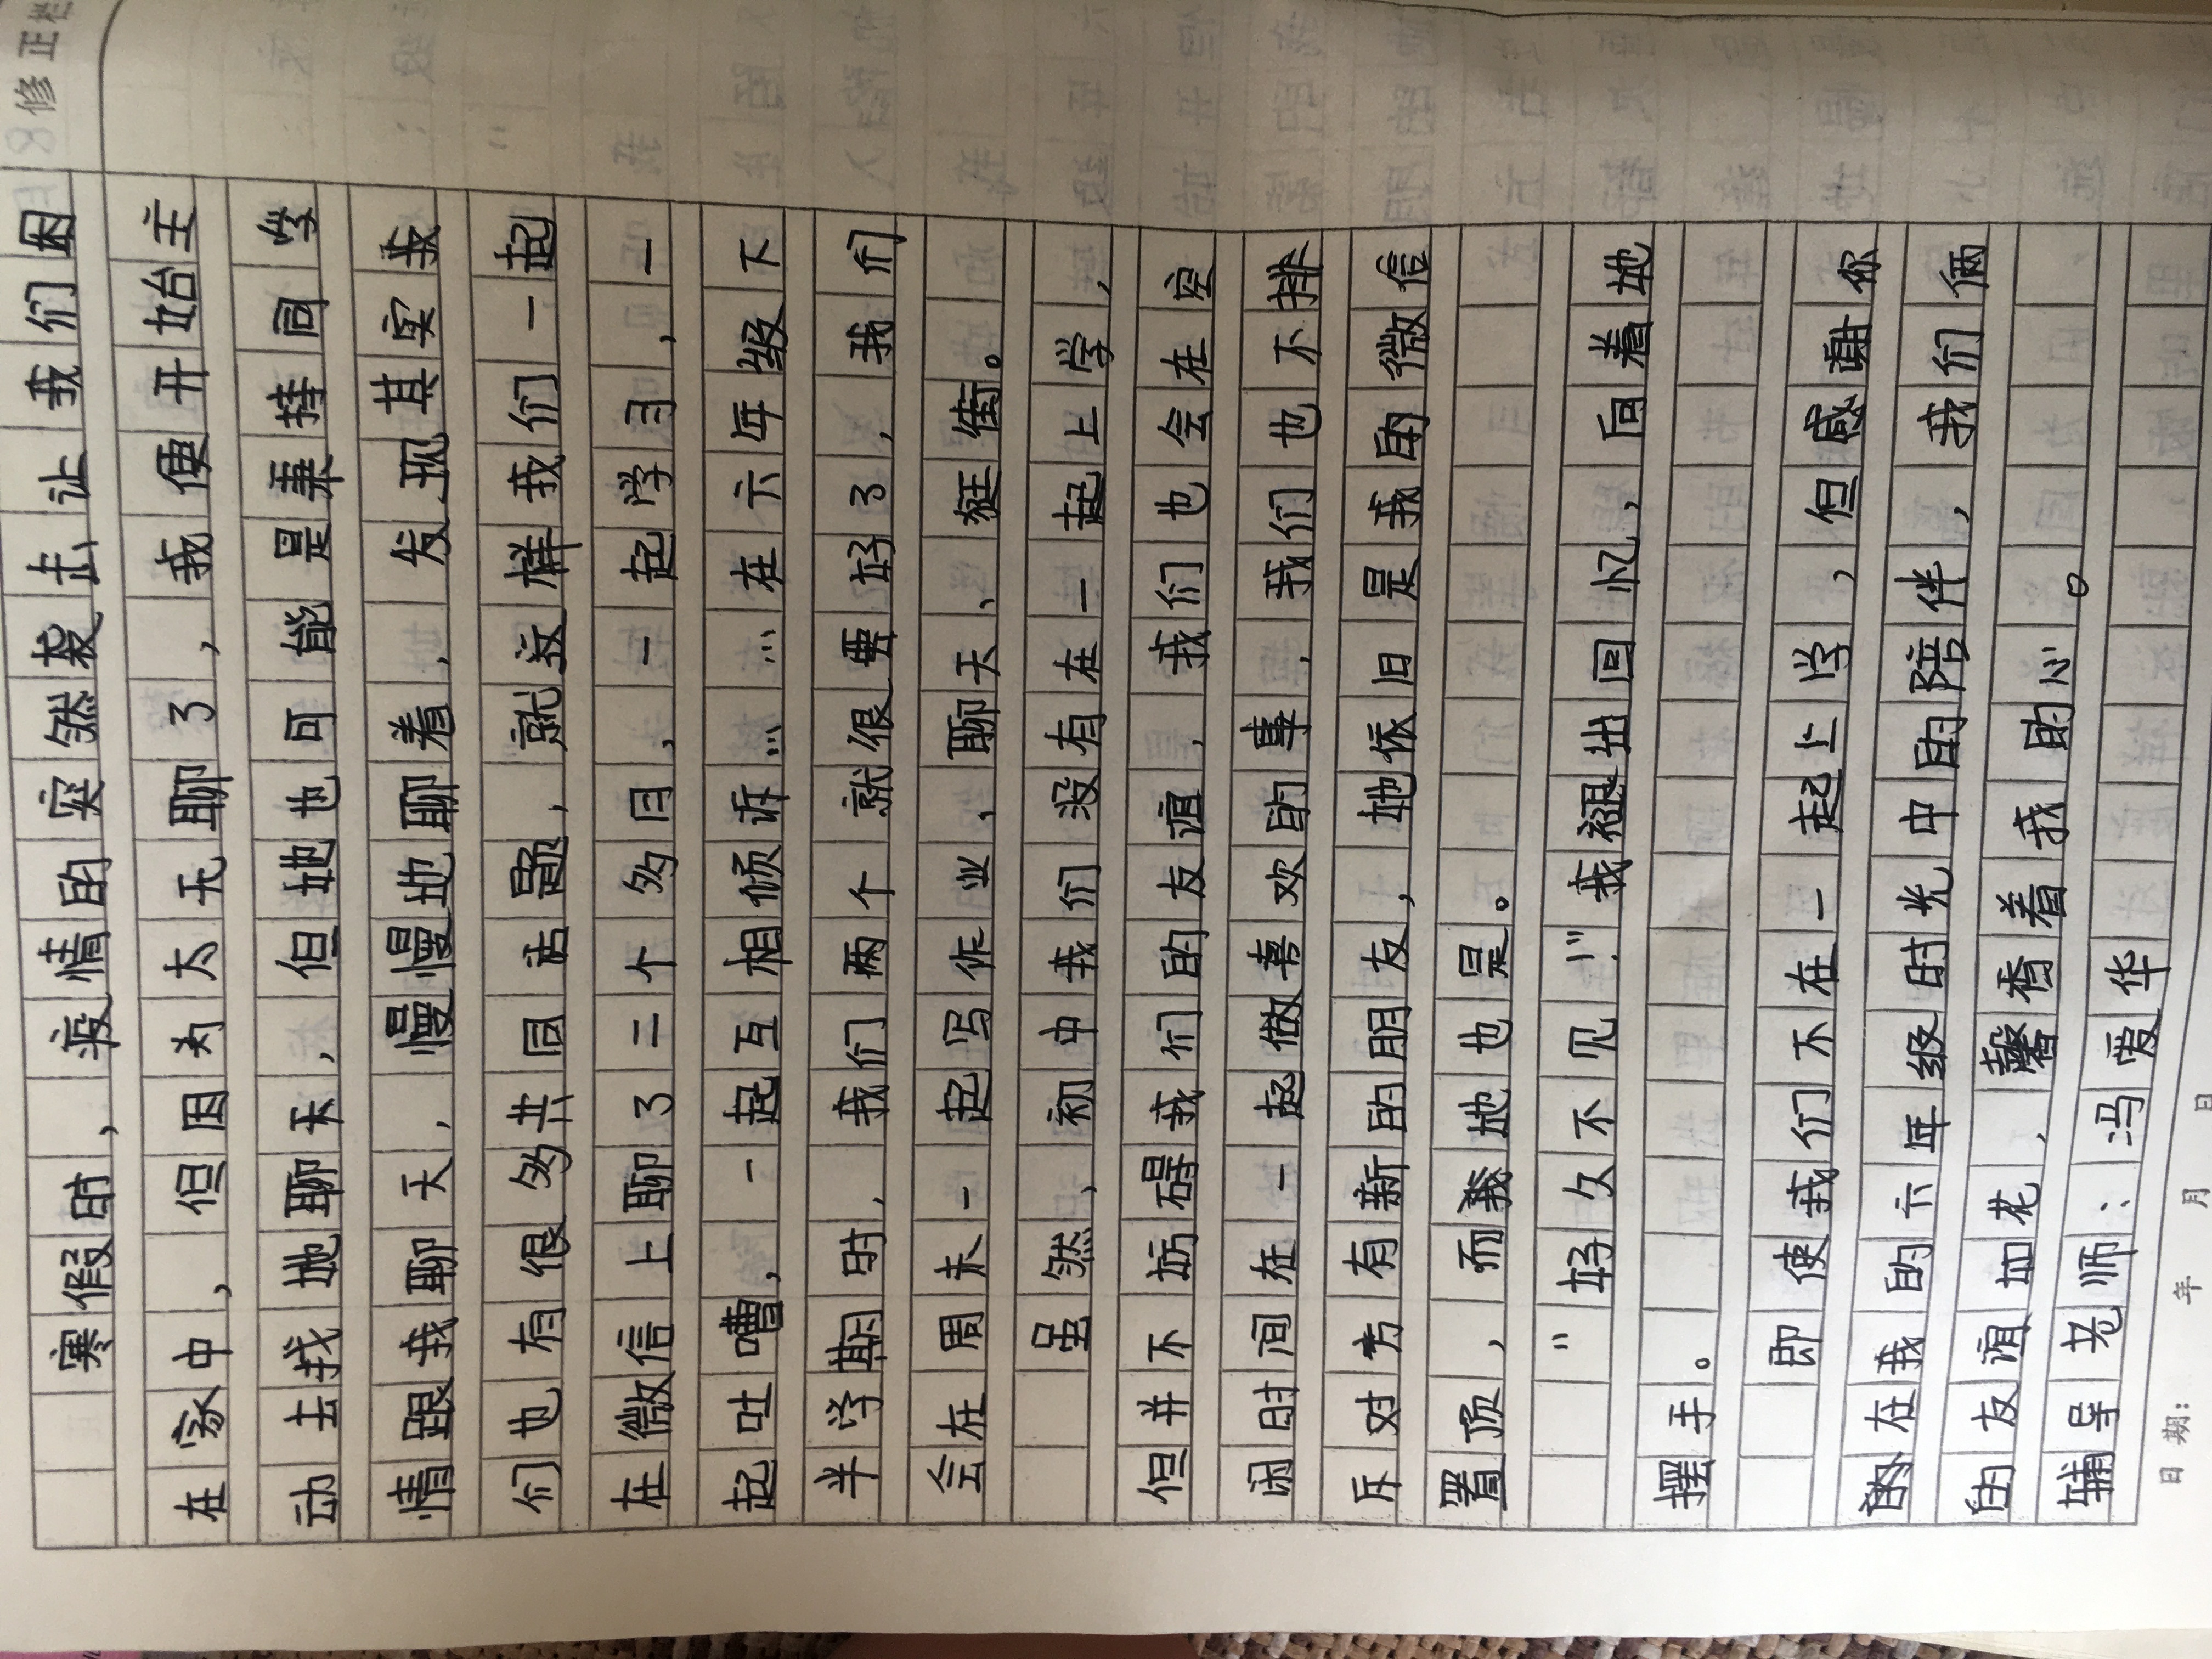 修正栏
寒假时，疫情的突然袭击，让我们困
在家中，但因为太无聊了，我便开始主
动去找她聊天，但她也可能是秉持同学
情跟我聊天，慢慢地聊着，发现其实我
们也有很多共同话题，就这样我们一起
在微信上聊了二个多月，一起学习，一
起吐嘈，一起互相倾诉……在六年级下
半学期时，我们两个就很要好了，我们
会在周末一起写作业、聊天、逛街。
虽然，初中我们没有在一起上学，
但并不妨碍我们的友谊，我们也会在空
闲时间在一起做喜欢的事，我们也不排
斥对方有新的朋友，她依旧是我的微信
置顶，而我她也是。
“好久不见！”我褪出回忆，向着她
摆手。
即使我们不在一起上学，但感谢你
在我的六年级时光中的陪伴，我们俩
的友谊如花，馨香着我的心。
辅导老师：冯爱华
日期： 年 月 日